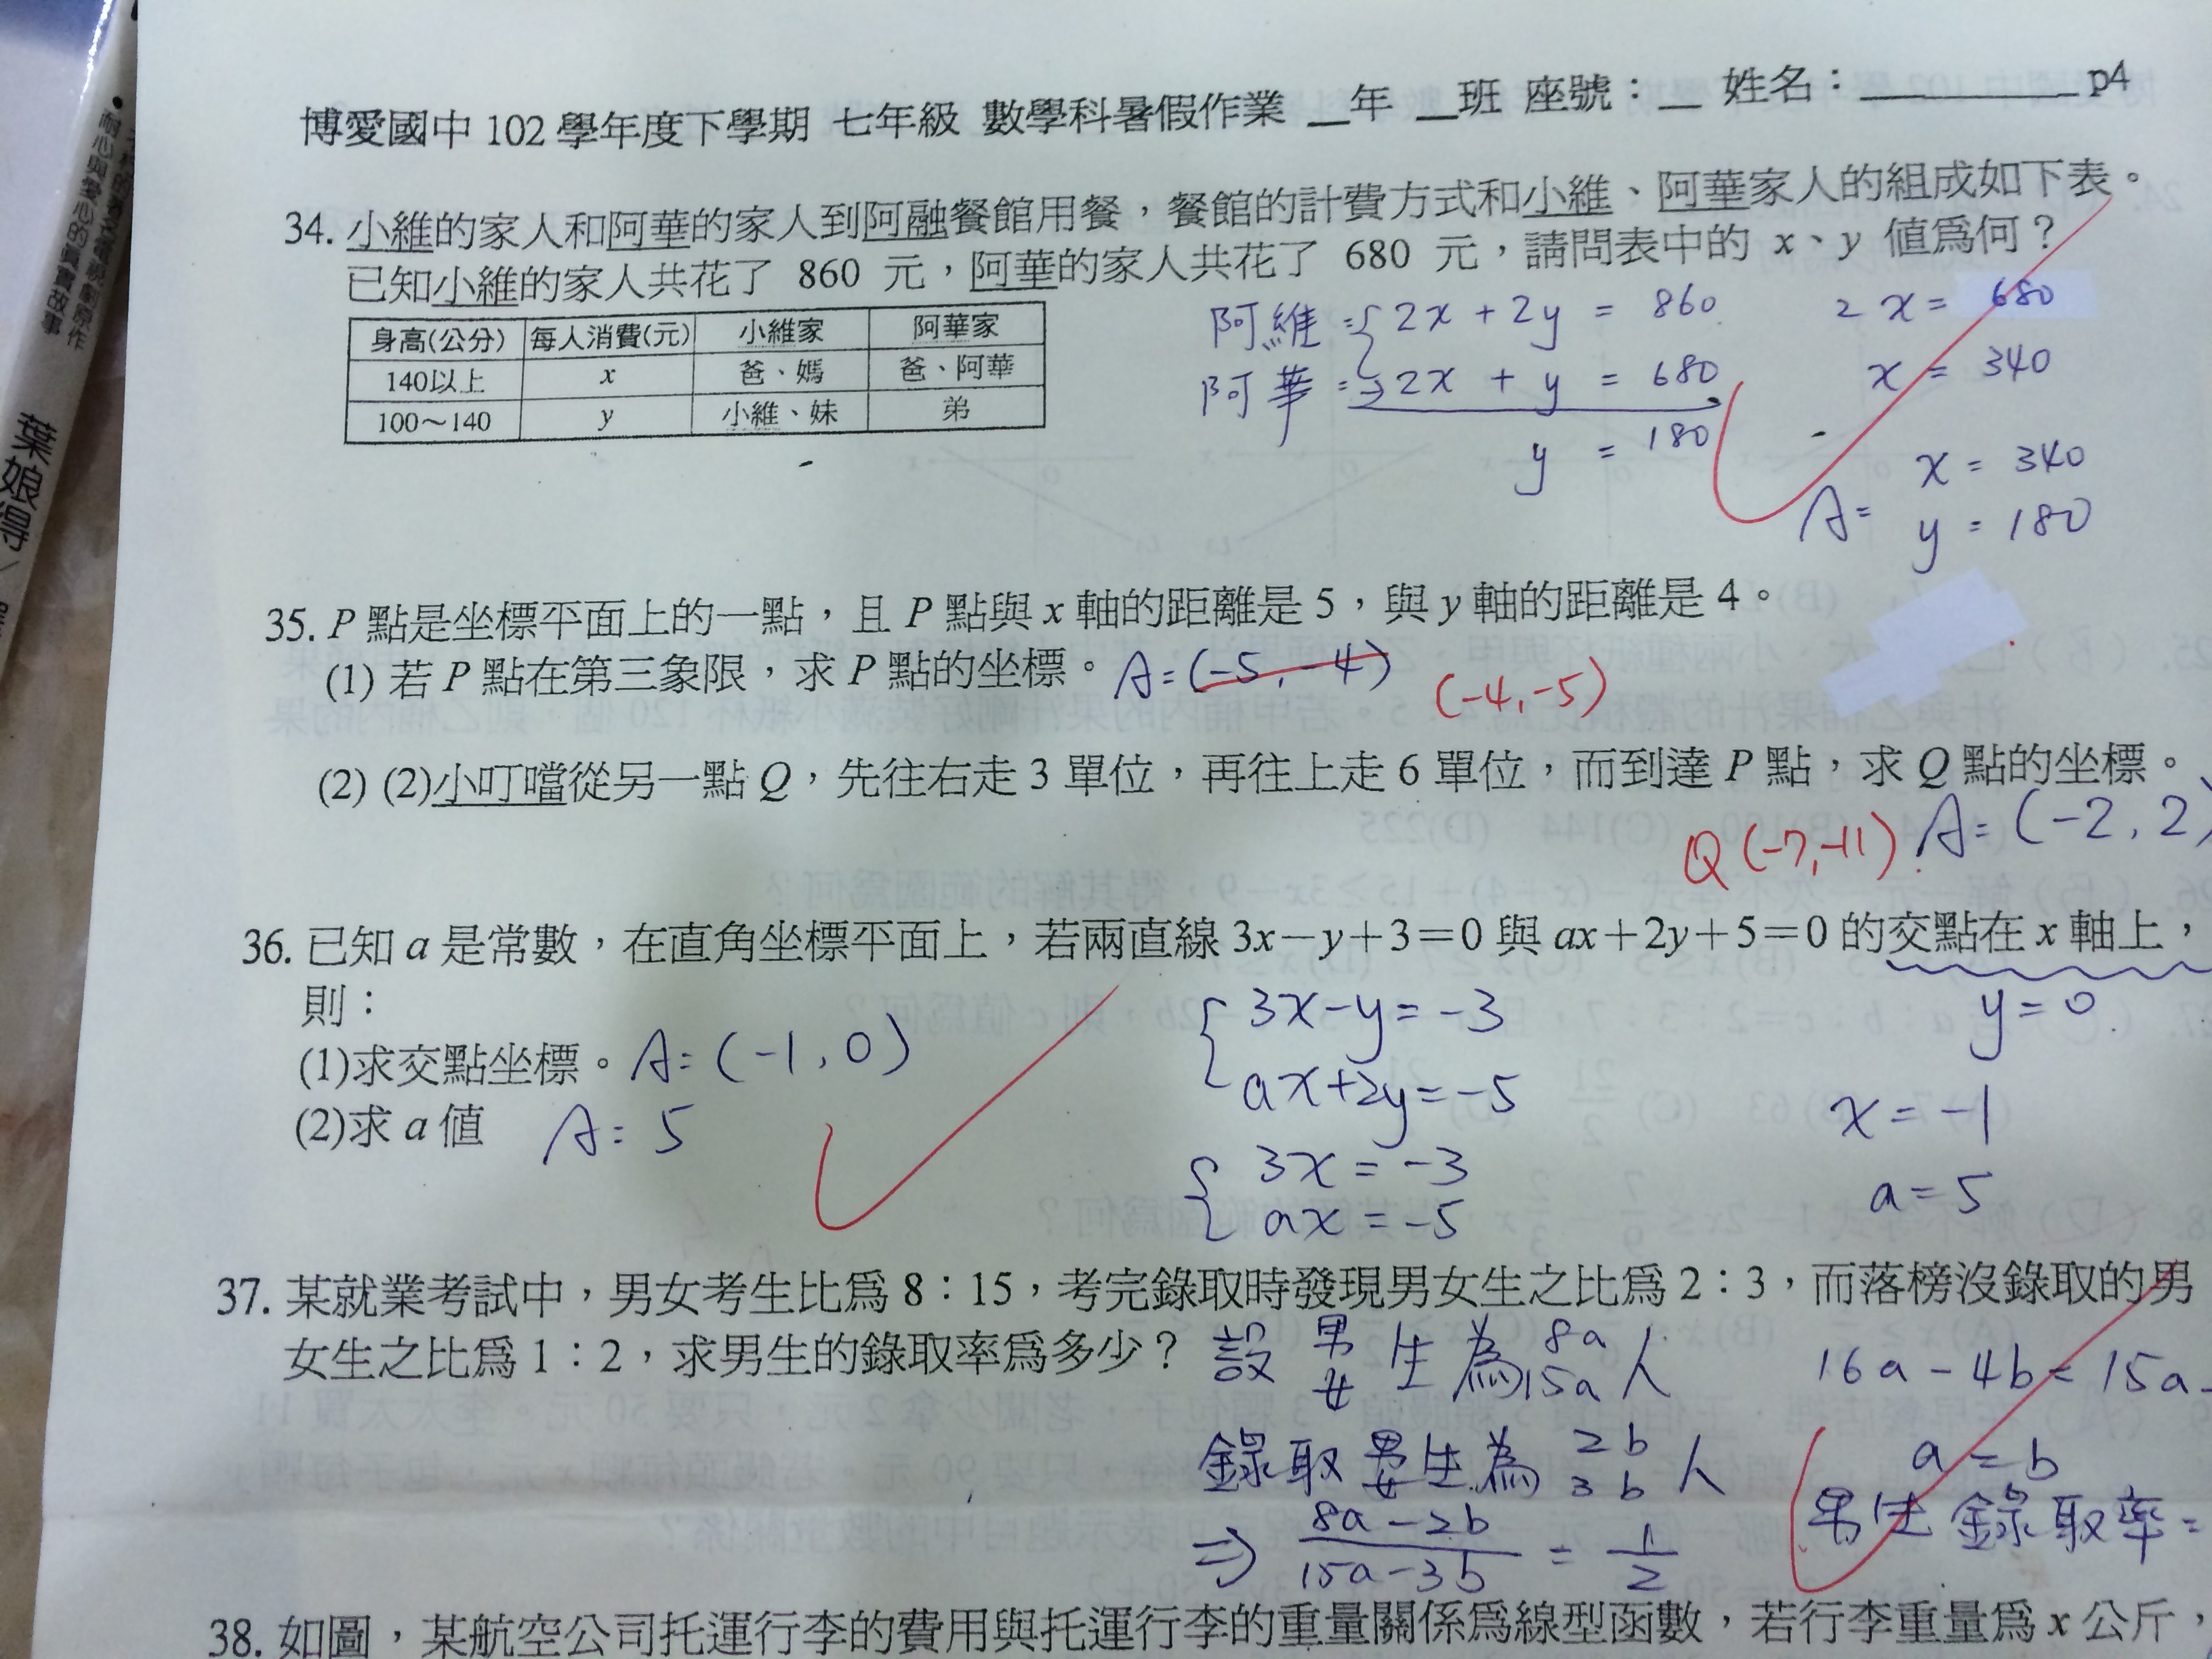 博愛國中 102 學年度下學期 七年級 數學科暑假作業 __年 __班 座號：__ 姓名：__________ p4
34. 小維的家人和阿華的家人到阿融餐館用餐，餐館的計費方式和小維、阿華家人的組成如下表。
已知小維的家人共花了 860 元，阿華的家人共花了 680 元，請問表中的 x、y 值爲何？
身高(公分) 每人消費(元) 小維家 阿華家
140以上 x 爸、媽 爸、阿華
100～140 y 小維、妹 弟
阿維 = { 2x + 2y = 860
阿華 = 2x + y = 680
y = 180
2x = 680
x = 340
A = x = 340
y = 180
35. P 點是坐標平面上的一點，且 P 點與 x 軸的距離是 5，與 y 軸的距離是 4。
(1) 若 P 點在第三象限，求 P 點的坐標。 A = (-5, -4) (-4, -5)
(2) (2)小叮噹從另一點 Q，先往右走 3 單位，再往上走 6 單位，而到達 P 點，求 Q 點的坐標。
Q (-7, -11) A = (-2, 2)
36. 已知 a 是常數，在直角坐標平面上，若兩直線 3x－y＋3＝0 與 ax＋2y＋5＝0 的交點在 x 軸上，
則：
(1)求交點坐標。 A = (-1, 0)
(2)求 a 值 A = 5
{ 3x - y = -3
ax + 2y = -5
{ 3x = -3
ax = -5
y = 0
x = -1
a = 5
37. 某就業考試中，男女考生比爲 8：15，考完錄取時發現男女生之比爲 2：3，而落榜沒錄取的男
女生之比爲 1：2，求男生的錄取率爲多少？
設 男女 生 為 8a 15a 人
錄取 男女 生 為 2b 3b 人
⇒ 8a - 2b / 15a - 3b = 1/2
16a - 4b = 15a -
a = b
男生 錄取率 =
38. 如圖，某航空公司托運行李的費用與托運行李的重量關係爲線型函數，若行李重量爲 x 公斤，
葉娘得
耐心與愛心的真實故事